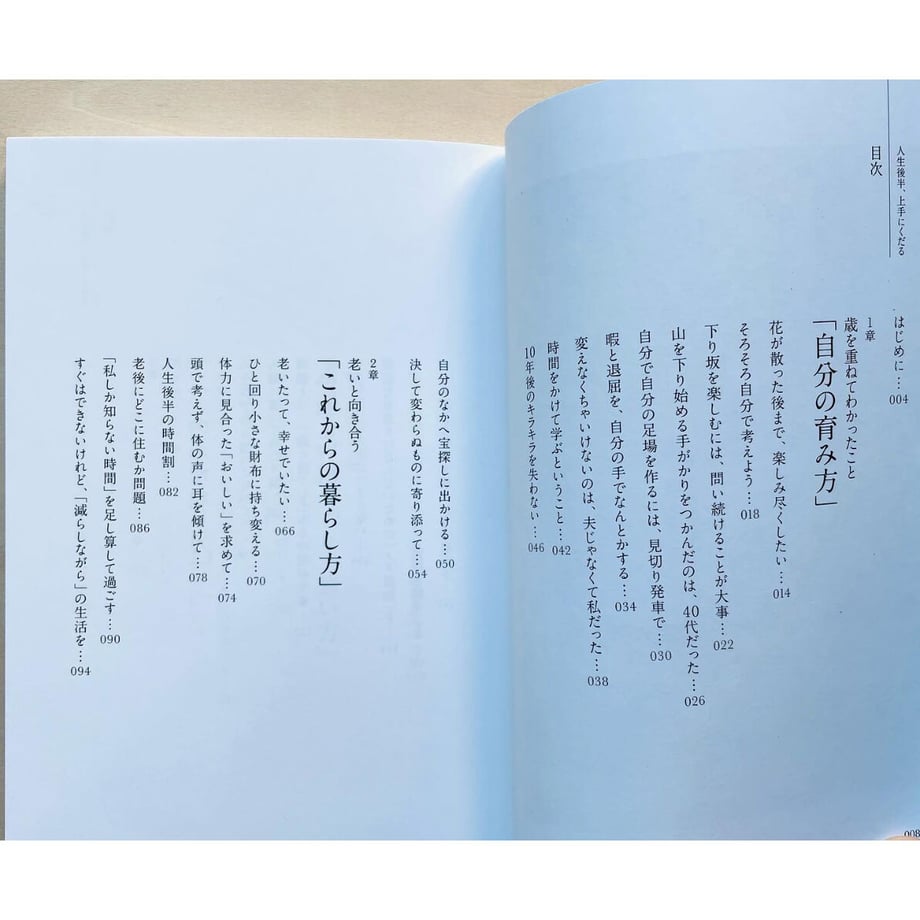 人生後半、上手にくだる
目次
はじめに…004
1章
歳を重ねてわかったこと
「自分の育み方」
花が散った後まで、楽しみ尽くしたい…014
そろそろ自分で考えよう…018
下り坂を楽しむには、問い続けることが大事…022
山を下り始める手がかりをつかんだのは、40代だった…026
自分で自分の足場を作るには、見切り発車で…030
暇と退屈を、自分の手でなんとかする…034
変えなくちゃいけないのは、夫じゃなくて私だった…038
時間をかけて学ぶということ…042
10年後のキラキラを失わない…046
008
自分のなかへ宝探しに出かける…050
決して変わらぬものに寄り添って…054
2章
老いと向き合う
「これからの暮らし方」
老いたって、幸せでいたい…066
ひと回り小さな財布に持ち変える…070
体力に見合った「おいしい」を求めて…074
頭で考えず、体の声に耳を傾けて…078
人生後半の時間割…082
老後にどこに住むか問題…086
「私しか知らない時間」を足し算して過ごす…090
すぐはできないけれど、「減らしながら」の生活を…094